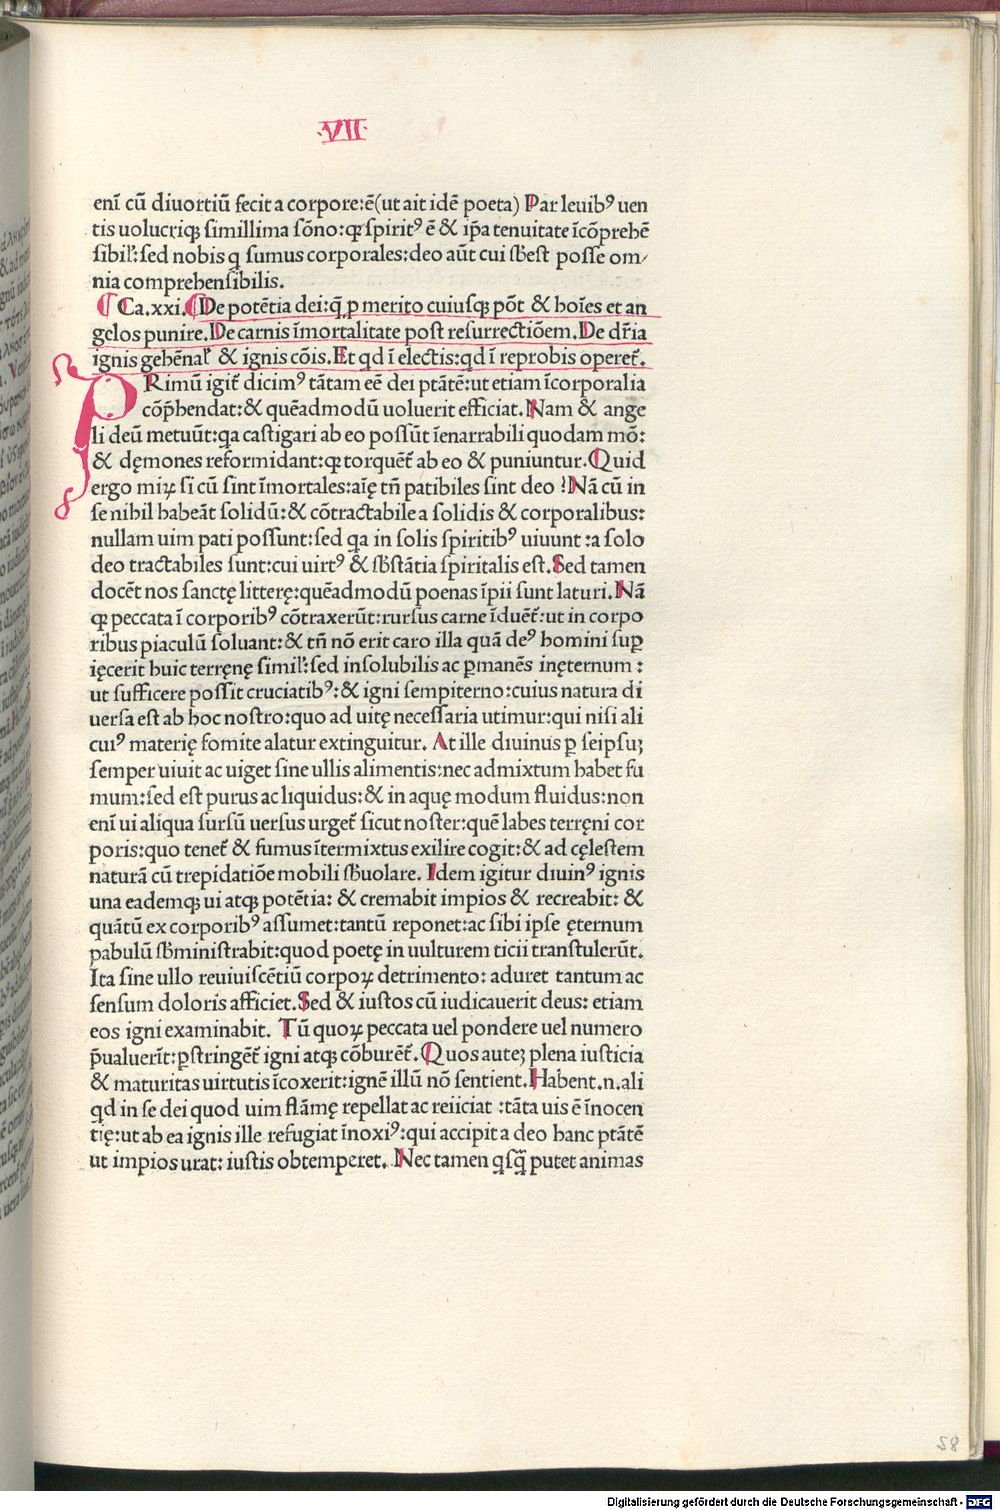 ·VII·
enī cū diuortiū fecit a corpore:ē(ut ait idē poeta) Par leuibꝰ uen
tis uolucriqꝫ simillima sōno:qꝛ spiritꝰ ē & ip̄a tenuitate īcōprehē
sibil̓:sed nobis q sumus corporales:deo aūt cui sb̓est posse om⸗
nia comprehensibilis.
Ca.xxi. De potētia dei:q̄ ꝑ merito cuiusqꝫ pōt & hoīes et an
gelos punire. De carnis īmortalitate post resurrectiōem. De dr̄ia
ignis gehēnal̓ & ignis cōis. Et qd ī electis:qd ī reprobis operet̄.
PRimū igit̄ dicimꝰ tātam eē dei ptātē:ut etiam īcorporalia
cōp̄hendat:& quēadmodū uoluerit efficiat. Nam & ange
li deū metuūt:qa castigari ab eo possūt īenarrabili quodam mō:
& dęmones reformidant:qꝛ torquēt̄ ab eo & puniuntur. Quid
ergo miꝝ si cū sint īmortales:aīę tn̄ patibiles sint deo? Nā cū in
se nihil habeāt solidū:& cōtractabile a solidis & corporalibus:
nullam uim pati possunt:sed qa in solis spiritibꝰ uiuunt :a solo
deo tractabiles sunt:cui uirtꝰ & sb̓stātia spiritalis est. Sed tamen
docēt nos sanctę litterę:quēadmodū poenas īpii sunt laturi. Nā
qꝛ peccata ī corporibꝰ cōtraxerūt:rursus carne īduēt̄:ut in corpo
ribus piaculū soluant:& tn̄ nō erit caro illa quā deꝰ homini suꝑ
ięcerit huic terręnę simil̓:sed insolubilis ac ꝑmanēs inęternum :
ut sufficere possit cruciatibꝰ:& igni sempiterno:cuius natura di
uersa est ab hoc nostro:quo ad uitę necessaria utimur:qui nisi ali
cuiꝰ materię fomite alatur extinguitur. At ille diuinus ꝑ seipsuꝫ
semper uiuit ac uiget sine ullis alimentis:nec admixtum habet fu
mum:sed est purus ac liquidus:& in aquę modum fluidus:non
enī ui aliqua sursū uersus urget̄ sicut noster:quē labes terręni cor
poris:quo tenet̄ & fumus ītermixtus exilire cogit:& ad cęlestem
naturā cū trepidatiōe mobili sb̓uolare. Idem igitur diuinꝰ ignis
una eademqꝫ ui atqꝫ potētia: & cremabit impios & recreabit: &
quātū ex corporibꝰ assumet:tantū reponet:ac sibi ipse ęternum
pabulū sb̓ministrabit:quod poetę in uulturem ticii transtulerūt.
Ita sine ullo reuiuiscētiū corpoꝝ detrimento: aduret tantum ac
sensum doloris afficiet. Sed & iustos cū iudicauerit deus: etiam
eos igni examinabit. Tū quoꝝ peccata uel pondere uel numero
p̄ualuerīt:ꝑstringēt̄ igni atqꝫ cōburēt̄. Quos auteꝫ plena iusticia
& maturitas uirtutis īcoxerit:ignē illū nō sentient. Habent.n.ali
qd in se dei quod uim flāmę repellat ac reiiciat :tāta uis ē īnocen
tię:ut ab ea ignis ille refugiat īnoxiꝰ:qui accipit a deo hanc ptātē
ut impios urat: iustis obtemperet. Nec tamen qsq̄ putet animas
58
Digitalisierung gefördert durch die Deutsche Forschungsgemeinschaft - DFG